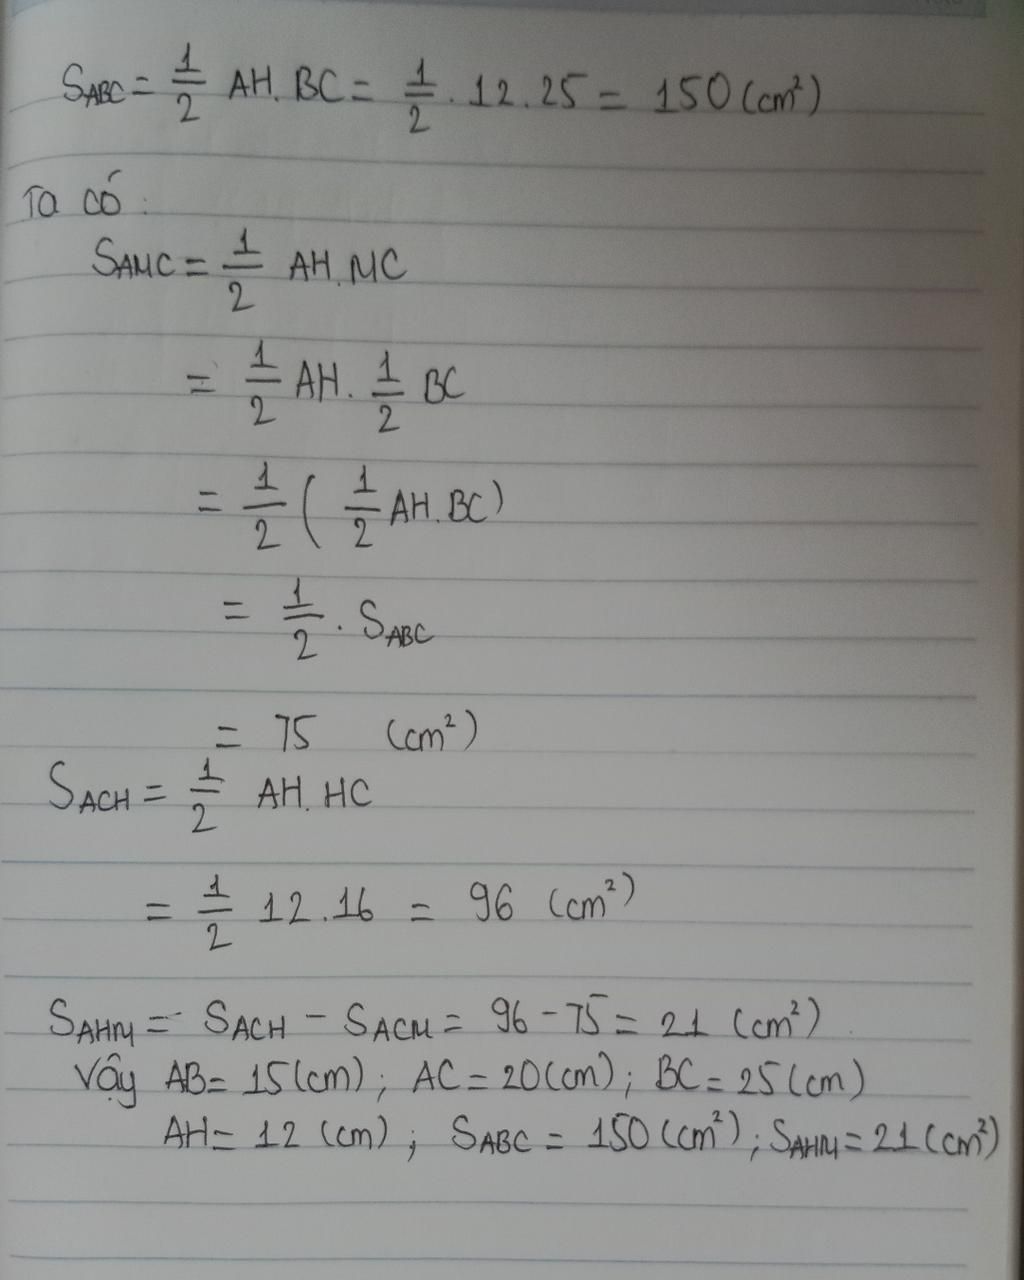 S_ABC = 1/2 AH. BC = 1/2 . 12.25 = 150 (cm²)
Ta có :
S_AMC = 1/2 AH. MC
= 1/2 AH. 1/2 BC
= 1/2 ( 1/2 AH. BC)
= 1/2 . S_ABC
= 75 (cm²)
S_ACH = 1/2 AH. HC
= 1/2 12.16 = 96 (cm²)
S_AHM = S_ACH - S_ACM = 96 - 75 = 21 (cm²)
Vậy AB = 15 (cm) ; AC = 20 (cm) ; BC = 25 (cm)
AH = 12 (cm) ; S_ABC = 150 (cm²) ; S_AHM = 21 (cm²)